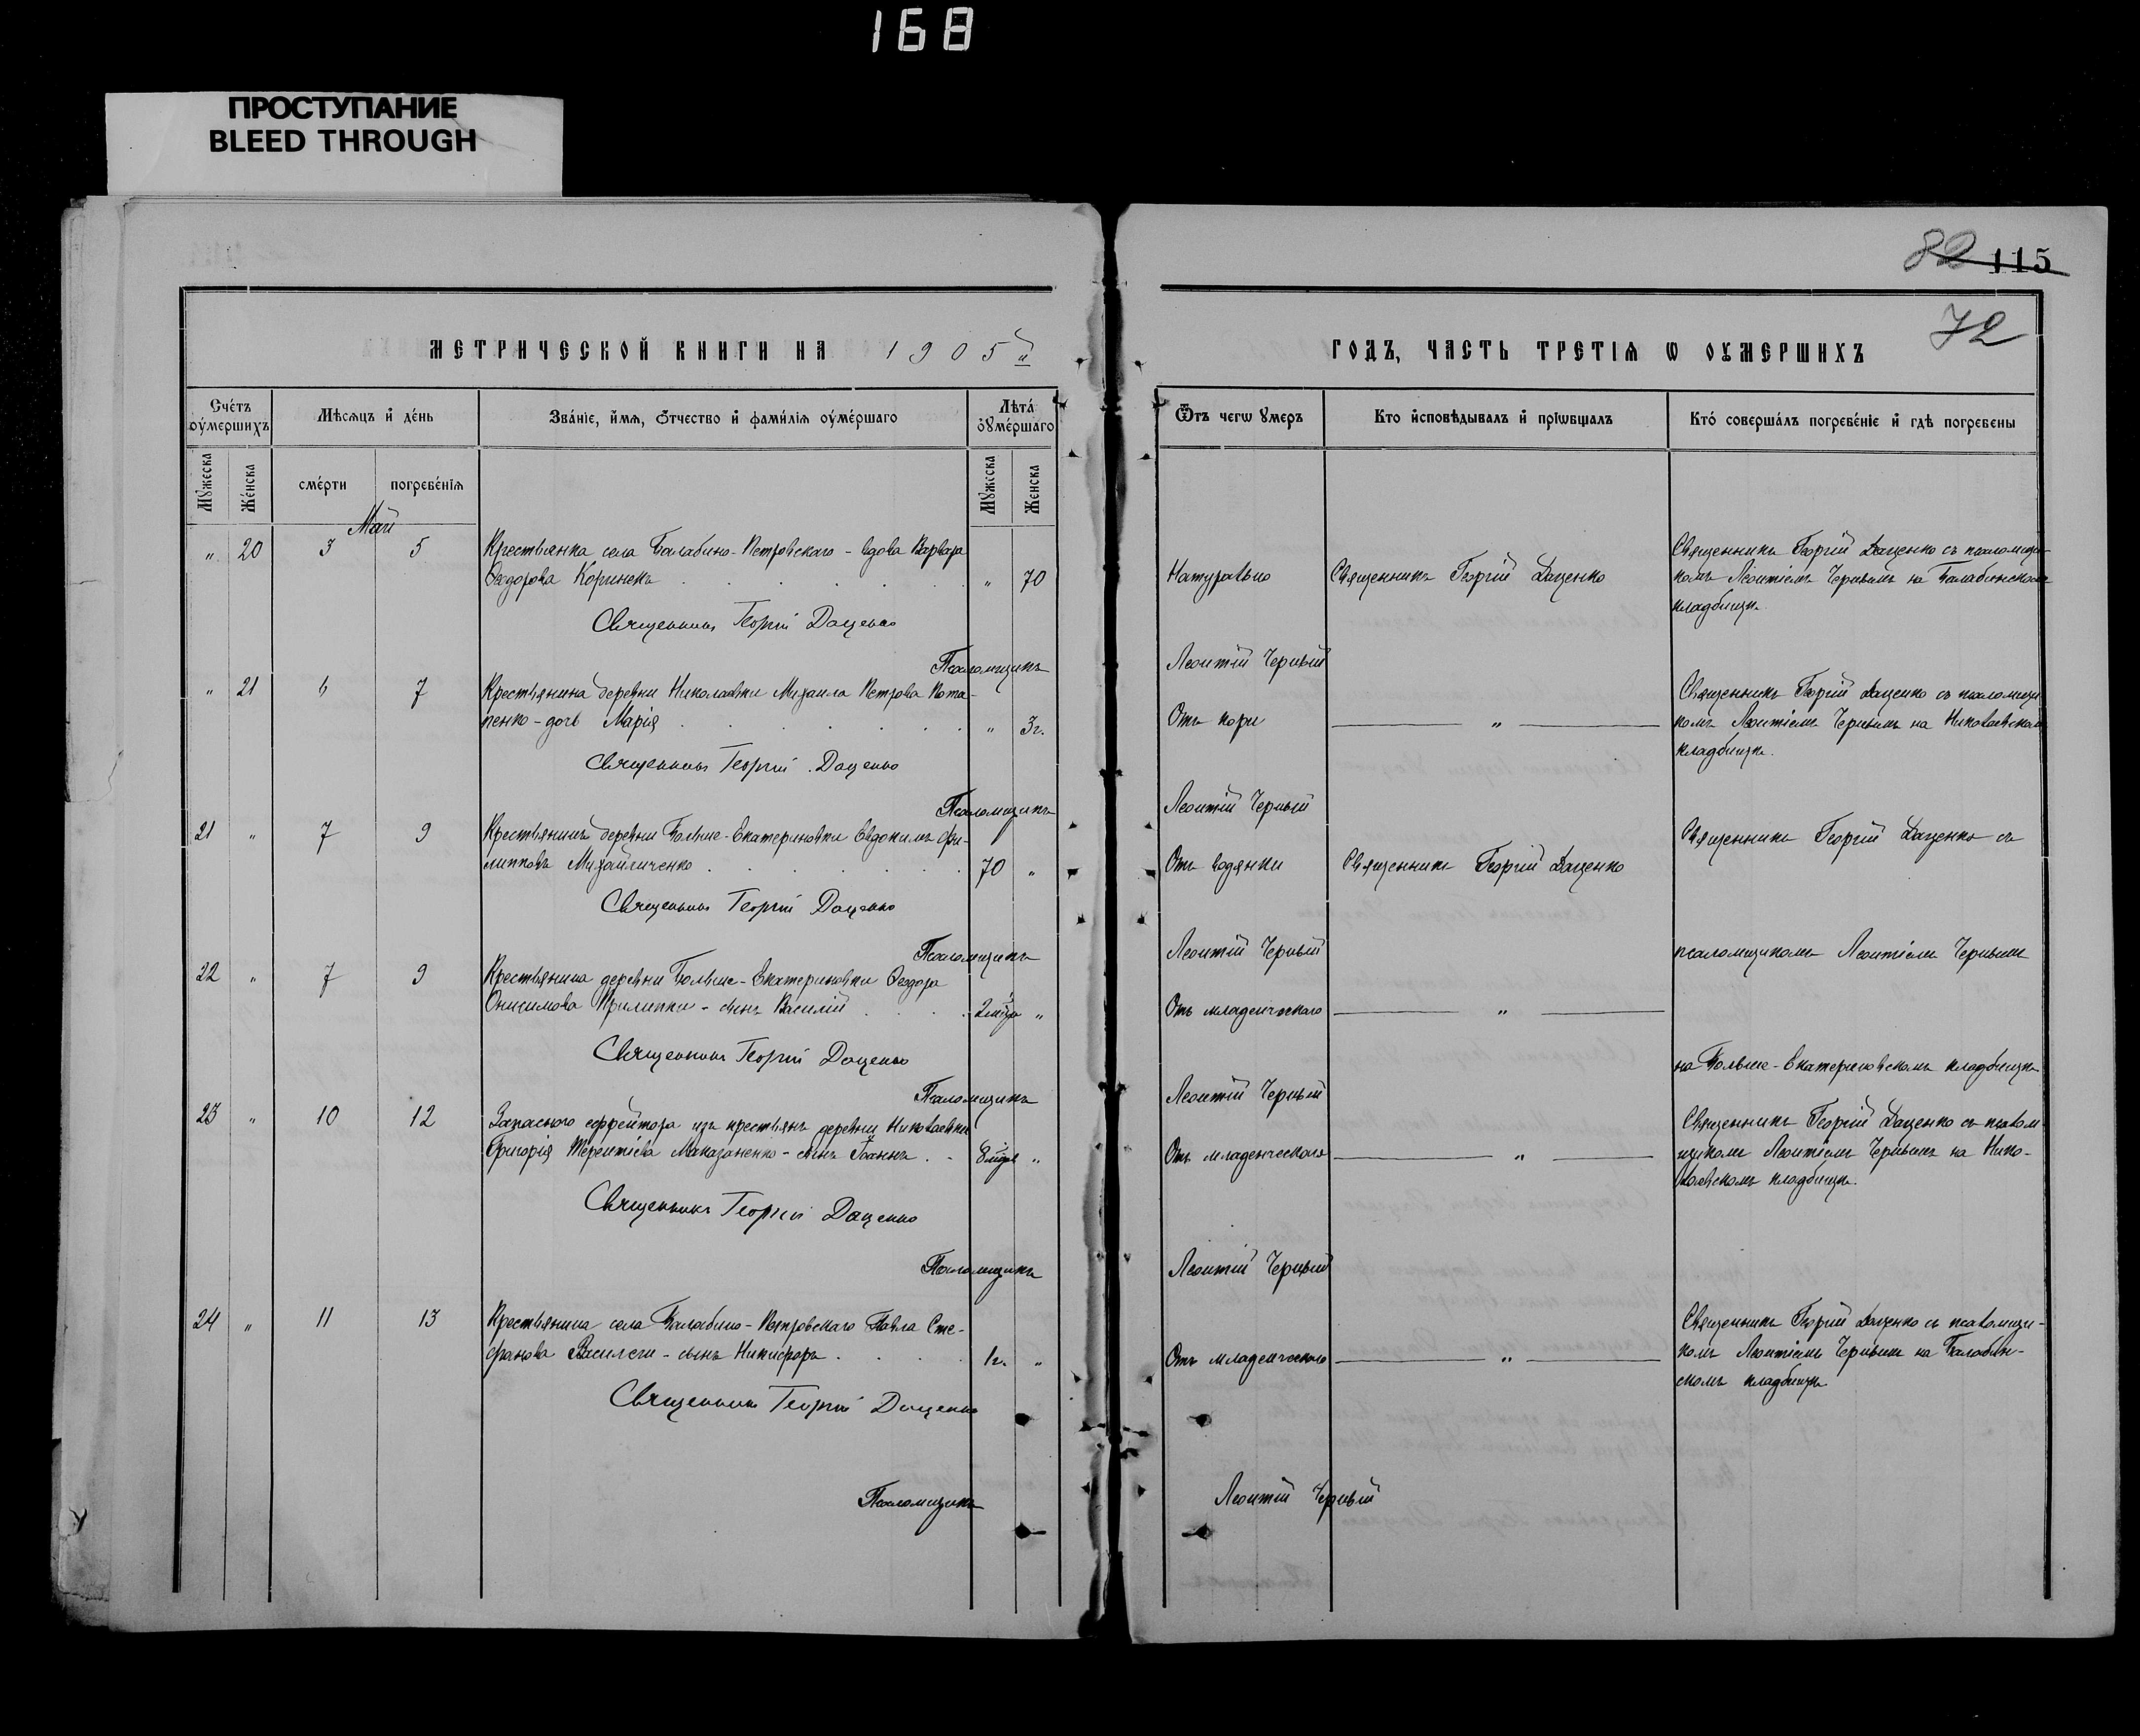 168
ПРОСТУПАНИЕ
BLEED THROUGH
82 115
72
МЕТРИЧЕСКОЙ КНИГИ НА 1905й
ГОДЪ, ЧАСТЬ ТРЕТІѦ Ѡ ОУМЕРШИХЪ
Счетъ оумершихъ
Мѣсяцъ и день
Званіе, имя, отчество и фамилія оумершаго
Лѣта оумершаго
Ѿтъ чегѡ умеръ
Кто исповѣдывалъ и пріѡбщалъ
Кто совершалъ погребеніе и гдѣ погребены
Мужеска
Женска
смерти
погребенія
Мужеска
Женска
Май
" 20 3 5 Крестьянка села Балабино-Петровскаго - вдова Варвара
Ѳеодорова Коринекъ " 70
Натурально
Священникъ Георгій Даценко
Священникъ Георгій Даценко съ псаломщи-
комъ Леонтіемъ Чернымъ на Балабинскомъ
кладбищѣ.
Священникъ Георгій Даценко
Псаломщикъ Леонтій Черный
" 21 6 7 Крестьянина деревни Николаевки Михаила Петрова Пота-
пенко - дочь Марія " 3г.
Отъ кори
"
Священникъ Георгій Даценко съ псаломщи-
комъ Леонтіемъ Чернымъ на Николаевскомъ
кладбищѣ.
Священникъ Георгій Даценко
Псаломщикъ Леонтій Черный
21 " 7 9 Крестьянинъ деревни Больше-Екатериновки Евдокимъ Фи-
липповъ Михайличенко 70 "
Отъ водянки
Священникъ Георгій Даценко
Священникъ Георгій Даценко съ
Священникъ Георгій Даценко
Псаломщикъ Леонтій Черный
псаломщикомъ Леонтіемъ Чернымъ
22 " 7 9 Крестьянина деревни Больше-Екатериновки Ѳеодора
Онисимова Прилипки - сынъ Василій 2 мѣс. "
Отъ младенческаго
"
Священникъ Георгій Даценко
на Больше-Екатериновскомъ кладбищѣ
Псаломщикъ Леонтій Черный
23 " 10 12 Запаснаго ефрейтора изъ крестьянъ деревни Николаевки
Григорія Терентіева Маказаненко - сынъ Іоаннъ 8 мѣс. "
Отъ младенческаго
"
Священникъ Георгій Даценко съ псалом-
щикомъ Леонтіемъ Чернымъ на Нико-
лаевскомъ кладбищѣ.
Священникъ Георгій Даценко
Псаломщикъ Леонтій Черный
24 " 11 13 Крестьянина села Балабино-Петровскаго Павла Сте-
фанова Василеги - сынъ Никифоръ 1г. "
Отъ младенческаго
"
Священникъ Георгій Даценко съ псаломщи-
комъ Леонтіемъ Чернымъ на Балабин-
скомъ кладбищѣ
Священникъ Георгій Даценко
Псаломщикъ Леонтій Черный